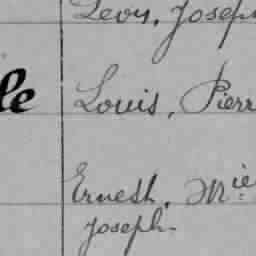 Léon, Joseph
le Louis, Pierr
Ernest, M^ie
Joseph-